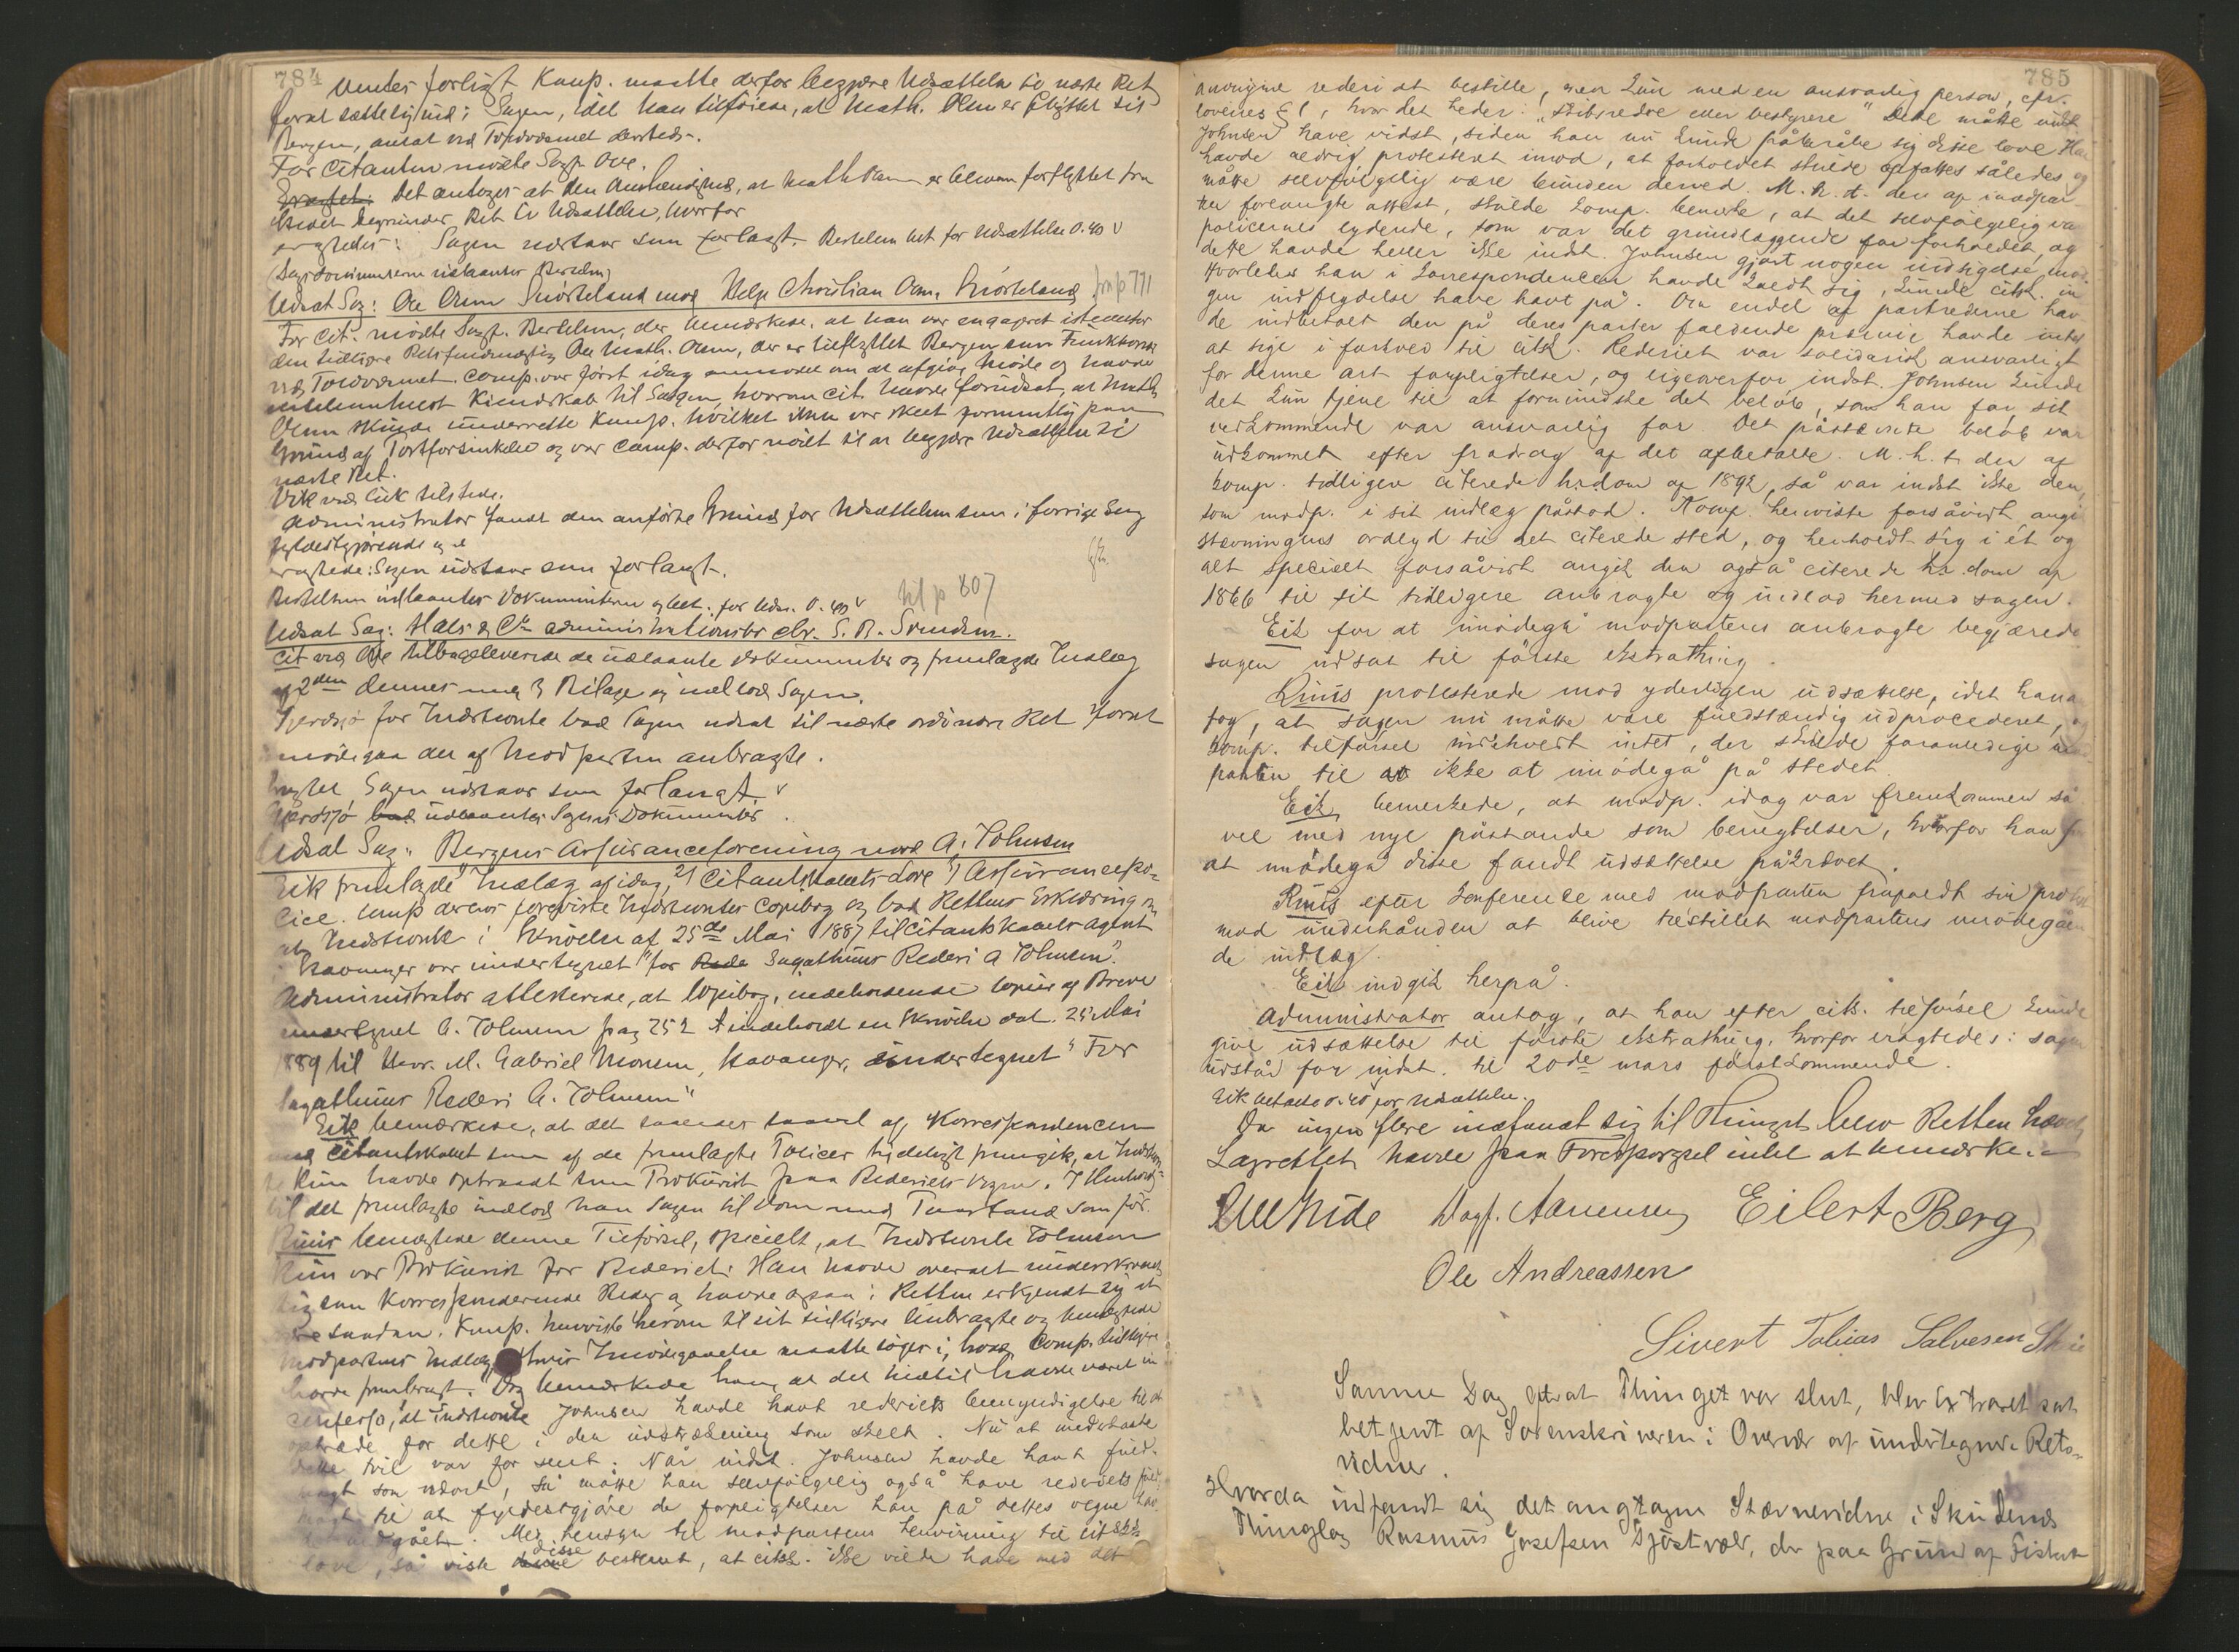 784
forligt Komp. maatte derfor begjære Udsættelse til næste Ret
forat sætte sig ind i Sagen, idet han tilføiede, at Math. Olsen er flyttet til
Bergen, ansat ved Toldvæsenet dersteds.
For Citanten mødte Sagf. Ove.
Eragtet: Det antages at den Omstændighed, at Math Olsen er bleven forflyttet fra
Stedet begrunder Ret til Udsættelse, hvorfor
eragtedes: Sagen udstaar som forlangt. Bertelsen bet for Udsættelse 0.40 v
Sagsdocumenterne udlaantes Bertelsen
Udsat Sag: Ole Olsen Snørteland mod Helge Christian Olsen Snørteland fra p 771
For Cit. mødte Sagf. Bertelsen, der bemærkede, at han var engageret istedetfor
den tidligere Retsfuldmægtig Ole Math. Olsen, der er tilflyttet Bergen som Funktionær
ved Toldvæsenet. Comp. var først idag anmodet om at afgive Møde og havde
Kiendskab til Sagen, hvorom Cit. havde forudsat, at Math
Olsen skulde underrette Komp. hvilket ikke var skeet formentlig paa
Grund af Postforsinkelse og var Comp. derfor nødt til at begjære Udsættelse til
næste Ret.
Eik var tilstede.
Administrator fandt den anførte Grund for Udsættelsen som i forrige Sag
fyldestgjørende og
eragtede: Sagen udstaar som forlangt.
Bertelsen udlaantes Dokumenterne og bet. for Uds. 0.40 v til p 807
Udsat Sag: Hals & Co administrationsbo ctr. S. B. Svendsen.
Cit ved Ove tilbageleverede de udlaante Dokumenter og fremlagde Indlæg
af 2den dennes med 3 Bilage og indlod Sagen.
Gjerdsjø for Indstevnte bad Sagen udsat til næste ordinære Ret forat
imødegaa det af Modparten anbragte.
Eragtet Sagen udstaar som forlangt. v
Gjerdsjø bad udlaantes Sagens Dokumenter.
Udsat Sag: Bergens Assuranceforening mod A. Johnsen
Eik fremlagde 1) Indlæg af idag, 2) Citantskabets Love 3) Assurancepo-
lice. Comp derhos foreviste Indstevntes Copibog og bad Rettens Erklæring om
at Indstevnte i Skrivelse af 25de Mai 1887 til Citantskabets agent
i Stavanger var undertegnet "for Rede Sagathuns Rederi A Johnsen".
Administrator attesterede, at Copibog, indeholdende Copier af Breve
undertegnet A. Johnsen pag 252 indeholdt en Skrivelse dat. 25 Mai
1889 til Herr. M. Gabriel Monsen, Stavanger, undertegnet "For
Sagathuns Rederi A. Johnsen"
Eik bemærkede, at det saaledes saavel af Korrespondencen
med Citantskabet som af de fremlagte Policer tydeligt fremgik, at Indstevn-
te kun havde optraadt som Prokurist paa Rederiets Vegne. I Henhold
til det fremlagte indlod han Sagen til Dom med Paastand som før.
Riis benægtede denne Tilførsel, specielt, at Indstevnte Johnsen
kun var Prokurist for Rederiet. Han havde overalt underskrevet
sig som Korresponderende Reder og havde ogsaa i Retten erkjendt sig at
være saadan. Komp. henviste herom til sit tidligere Anbragte og benægtede
Modpartens Indlæg, hvis Imødegaaelse maatte søges i, hvad Comp. tidligere
havde frembragt. Dog bemærkede han, at det hidtil havde været in
confesso, at Indstevnte Johnsen havde havt rederiets bemyndigelse til at
optræde for dette i den udstrækning som skeet. Nu at undertaste
dette tvil var for sent. Når indst. Johnsen havde havt fuld-
magt som nævnt, så måtte han selvfølgelig også have rederiets fuld-
magt til at fyldestgjøre de forpligtelser han på dettes vegne hav-
de indgået. Med hensyn til modpartens henvisning til citsk's
love, så viste denne disse bestemt, at citsk. ikke vilde have med det
785
anonyme rederi at bestille, men kun med en ansvarlig person, cfr.
lovenes § 1, hvor det heder: "skibsredre eller bestyrere" Dette måtte indst.
Johnsen have vidst, siden han nu kunde påberåbe sig disse love. Han
havde aldrig protesteret imod, at forholdet skulde opfattes således og
måtte selvfølgelig være bunden derved. M. h. t. den af modpar-
ten forlangte attest, skulde komp. bemerke, at det selvfølgelig var
policernes lydende, som var det grundlæggende for forholdet, og
dette havde heller ikke indst. Johnsen gjort nogen indsigelse mod.
Hvorledes han i korrespondencen havde kaldt sig, kunde citsk. in
gen indflydelse have havt på. Om endel af partrederne hav
de indbetalt den på deres parter faldende præmie havde intet
at sige i forhold til citsk. Rederiet var solidarisk ansvarligt
for denne art forpligtelser, og ligeoverfor indst. Johnsen kunde
det kun tjene til at formindske det beløb, som han for sit
vedkommende var ansvarlig for. Det påstævnte beløb var
udkommet efter fradrag af det afbetalte. M. h. t. den af
komp. tidligere citerede hr.dom af 1892, så var indst ikke den,
som modp. i sit indlæg påstod. Komp. henviste forsåvidt angik
stævningens ordlyd til det citerede sted, og henholdt sig i ét og
alt specielt forsåvidt angik den også citerede hr. dom af
1866 til sit tidligere anbragte og indlod hermed sagen.
Eik for at imødegå modpartens anbragte begjærede
sagen udsat til første ekstrathing.
Riis protesterede mod yderligere udsættelse, idet han an
tog, at sagen nu måtte være fuldstændig udprocederet, og
komp. tilførsel indeholdt intet, der skulde foranledige mod-
parten til at ikke at imødegå på stedet.
Eik bemerkede, at modp. idag var fremkommen så
vel med nye påstande som benegtelser, hvorfor han for
at imødegå disse fandt udsættelse påkrævet.
Riis efter konference med modparten frafaldt sin protest
mod underhånden at blive tilstillet modpartens imødegåen
de indlæg.
Eik indgik herpå.
Administrator antog, at han efter citk. tilførsel kunde
give udsættelse til første ekstrathing, hvorfor eragtedes: sagen
udstår for indst. til 20de mars førstkommende.
Eik betalte 0.40 for Udsættelse.
Da ingen flere indfandt sig til Thinget blev Retten hævet,
Lagrettet havde paa Forespørgsel intet at bemærke.
Eilert Berg
Ole Andreassen
Sivert Tobias Salvesen
Samme Dag efterat Thinget var slut, blev Extraret sat
betjent af Sorenskriveren i Overvær af undertegnede Rets-
vidner.
Hvorda indfandt sig det antagne Stævnevidne i Skudenes
Thinglag Rasmus Josefsen Sjøstvær, der paa Grund af Fisket